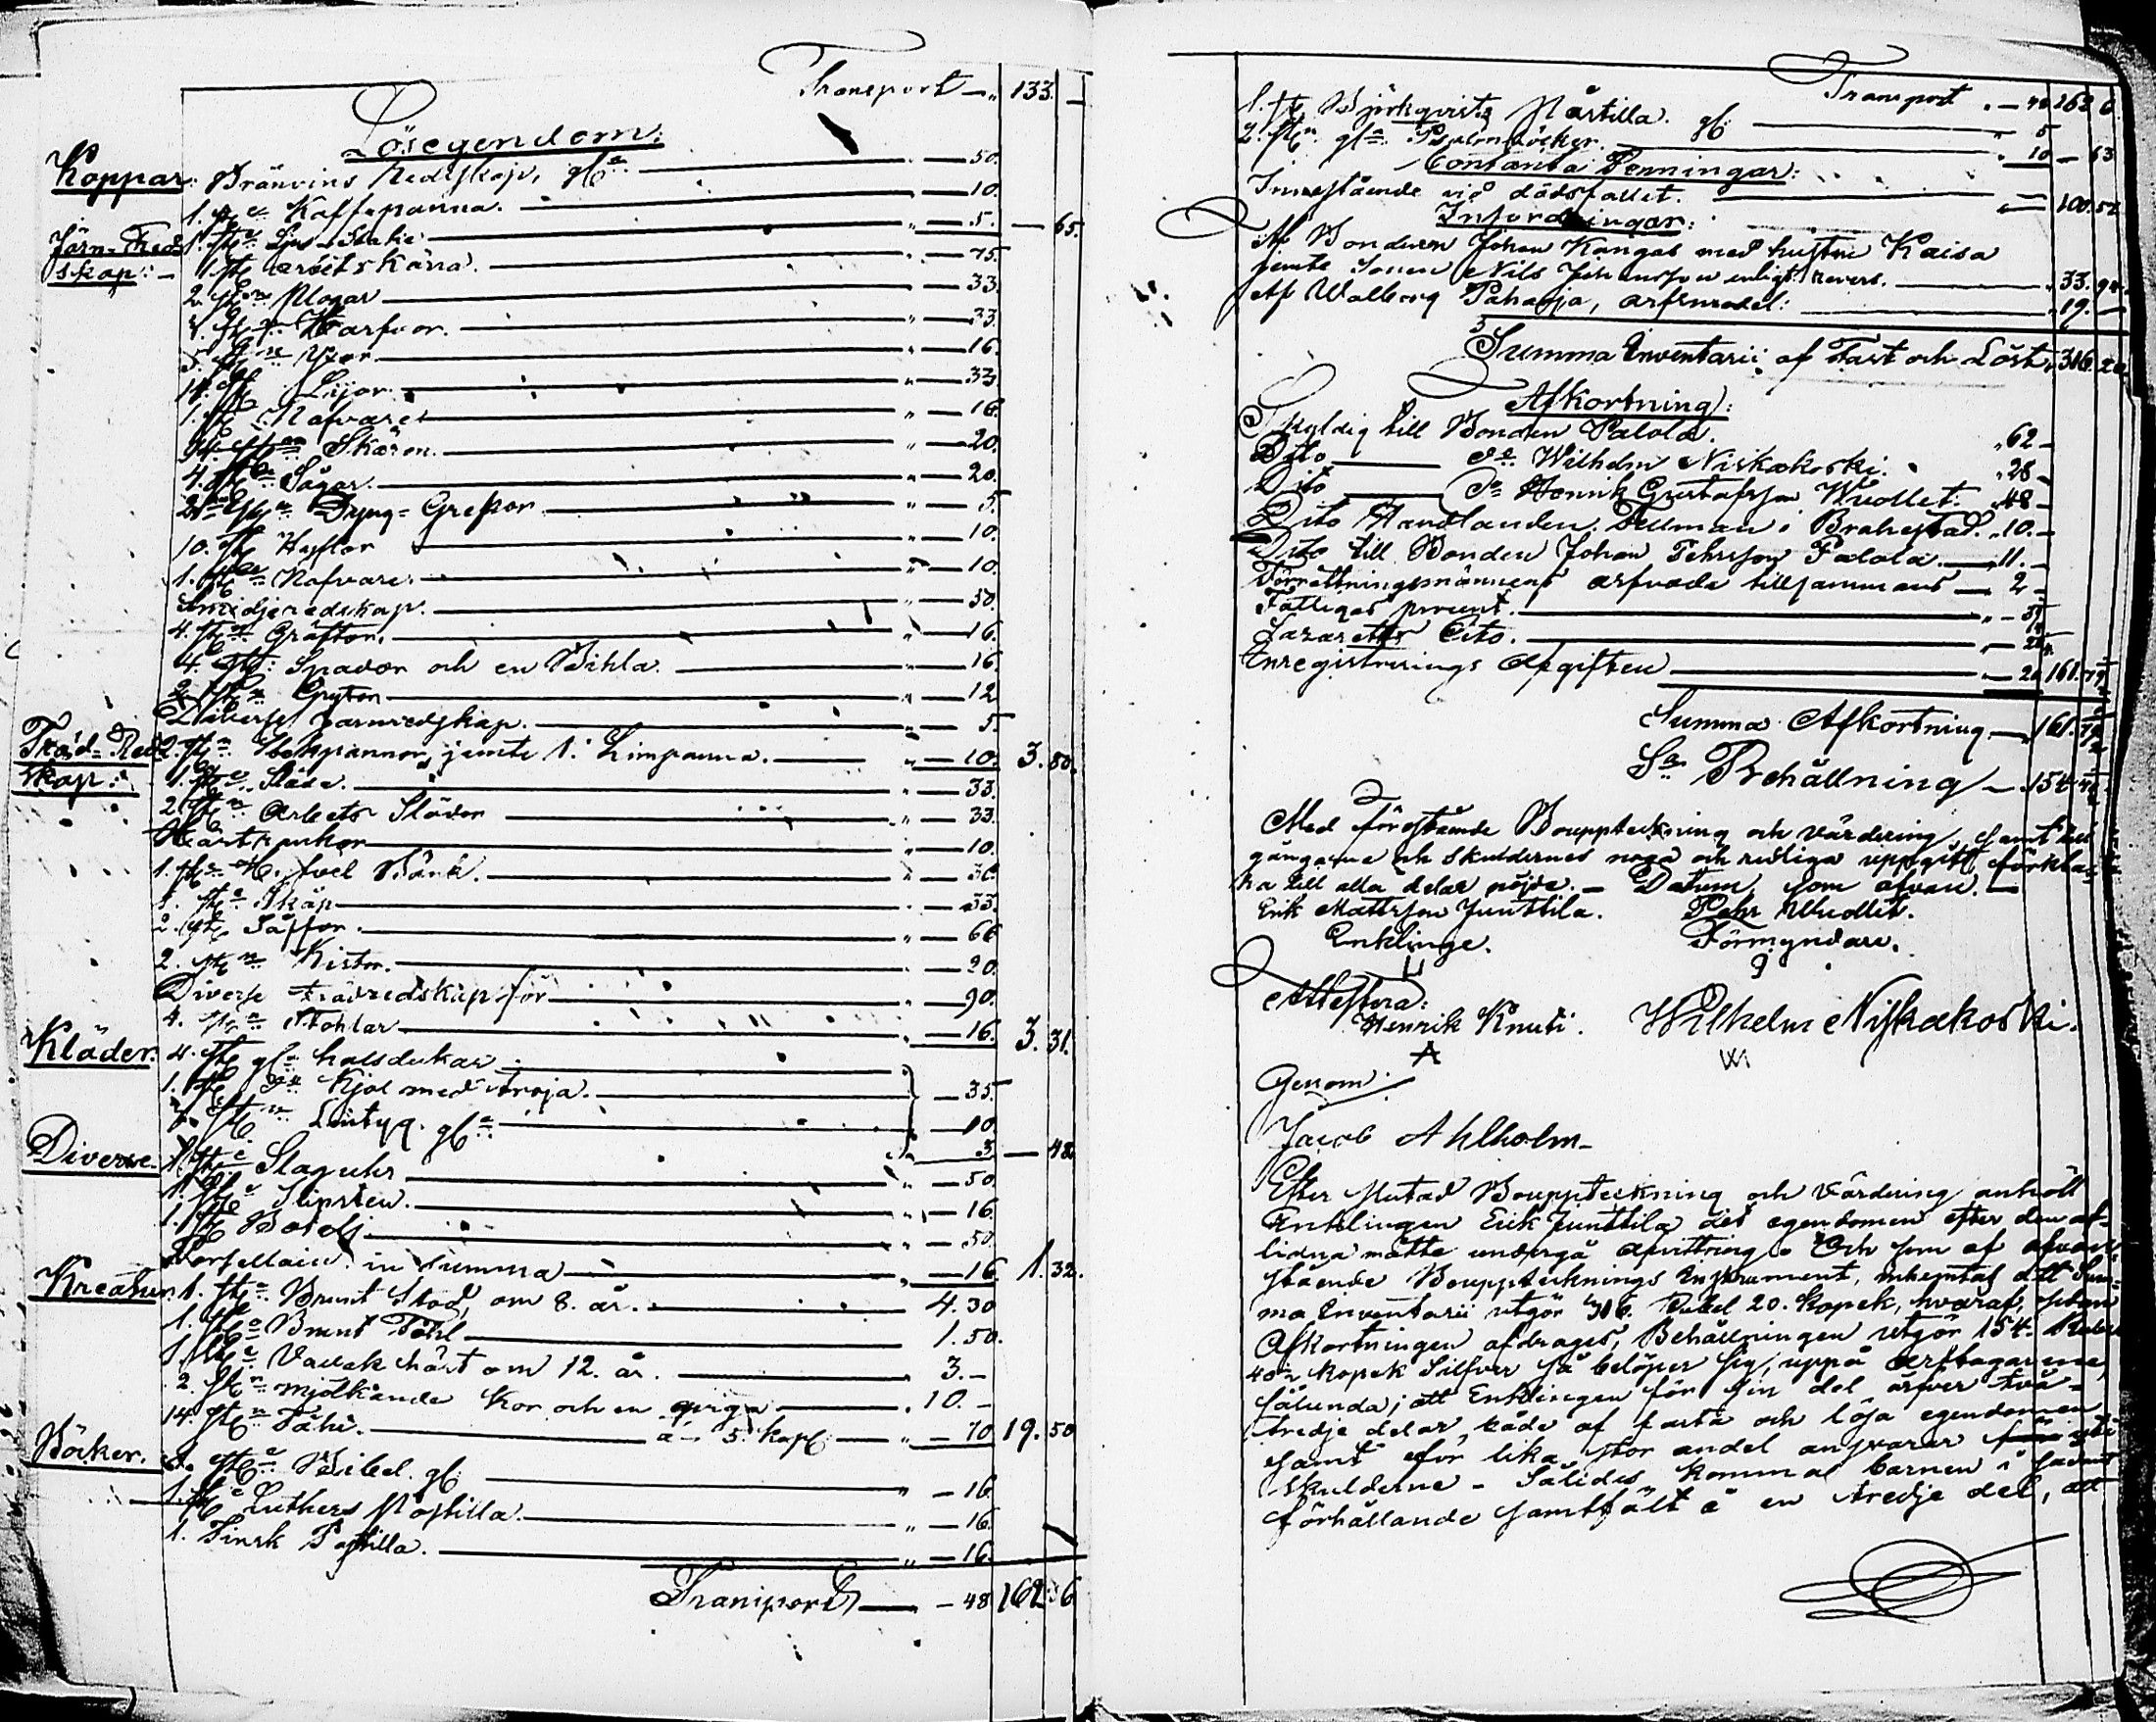 Transport — 133. —
Lösegendom:
Koppar: Bränvins Redskap, gl — 50.
1. st Kaffepanna. — 10.
1. st Ljus-Stake — 5. — 65.
Järn-Red-
skap: — 1 st arbetskärra. — 75.
2. st Plogar — 33.
st Harfvor. — 33.
5. st Yxor — 16.
st Lijor — 33.
1. st Nafvare — 16.
st Skäror. — 20.
4. st Sågar. — 20.
2 st Dyng-Grepar — 5.
10. st Hyflor — 10.
1. st Nafvare — 10.
Smidjeredskap. — 50.
4. st Gräftor. — 16.
4. st: Spador och en Bihla. — 16.
2. st Grytor — 12
Diverse jarnredskap. — 5.
Träd-Red-
skap: 2. st Stekpannor jemte 1. Limpanna. — 10. 3. 80.
1. st Släde. — 33.
2. st Arbets Slädor — 33.
— 10.
1. st Hyfvel Bänk. — 30.
1. st Skåp — 33.
2. st Såffor. — 66
2. st Kistor. — 20.
Diverse trädredskap för — 90.
4. st Stohlar — 16. 3. 31.
Kläder. 4. st gl halsdukar
1. st Kjol med tröja. — 35.
st Lintyg. gl — 10.
3 — 48.
Diverse. 1. st Slaguhr — 50.
1. st Slipsten. — 16.
1. st — 50.
Porsellain in summa — 16. 1. 32.
Kreatur. 1. st Brunt Stod, om 8. år. — 4. 30
1. st Brunt Fåhl — 1. 50.
1. st Vallak häst om 12. år. — 3. —
2. st mjölkande Kor och en qviga — 10. —
14. st Fåhr. — à 5. kop — 70 19. 50
Böcker. 1. st Bibel. gl — 16
1. st Luthers Postilla. — 16.
1. Finsk Postilla. — 16.
Transport — 48 162. 6
Transport — 48 162 6
1. st Björkqvists Påstilla. gl — 5
2. st gl Psalmböcker. — 10 — 63
Contanta Penningar:
Innestående vid dödsfallet. — 100. 57
Infordringar:
Af Bonden Johan Kangas med hustru Kaisa
jemte Sonen Nils Johansson enligt Revers. — 33. 94.
Af Walborg Pahaoja, arfsmedel: — 19. —
Summa Inventarii af Fast och Löst, 316. 20
Afkortning:
Skyldig till Bonden Palola. 62 —
Dito — D:o Wilhelm Niskakoski. 28 —
Dito — D:o Henrik Gustafsson Wuollet. 48 —
Dito Handlanden Fellman i Brahestad. 10. —
Dito till Bonden Johan Pehrsson Palola. — 11. —
Förrättningsmännens arfvode tillsammans — 2 —
Fattigas procent. —
Lazarettes Dito. —
Enregistrerings Afgiften — 20 161.
Summa Afkortning — 161.
S:a Behållning — 154.
Med förestående Bouppteckning och värdering, samt till-
gångarne och skuldernes noga och redliga uppgift förkla-
ra till alla delar nöjde. — Datum, som ofvan. —
Erik Mattsson Junttila. Pehr Wuollet.
Enklinge. Förmyndare.
Attestera:
Henrik Knuti. Wilhelm Niskakoski.
Genom:
Jacob Ahlholm
Efter slutad Bouppteckning och Värdering anhöll
Enklingen Erik Junttila det egendomen efter den af-
lidna måtte undergå afvittring. Och som af ofvan-
stående Boupptecknings Instrument, inhemtas att Sum-
ma Inventarii utgör 316. Rubel 20. kopek, hvaraf, sedan
Afkortningen afdrages, Behållningen utgör 154. Rubel
40 kopek Silfver så belöper sig, uppå arftagarene
sålunda; att Enklingen för sin del ärfver två-
tredje delar, både af fasta och lösa egendomen
samt för lika stor andel ansvarar
skulderne. Således kommer barnen i
förhållande samfält å en tredje del, att